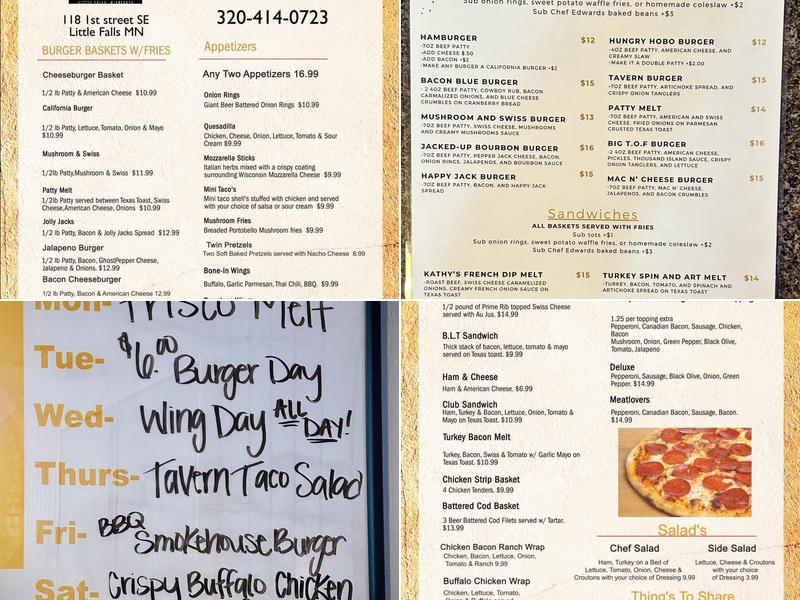 118 1st street SE
Little Falls MN
320-414-0723
BURGER BASKETS W/FRIES
Cheeseburger Basket
1/2 lb Patty & American Cheese $10.99
California Burger
1/2 lb Patty, Lettuce, Tomato, Onion & Mayo
$10.99
Mushroom & Swiss
1/2lb Patty,Mushroom & Swiss $11.99
Patty Melt
1/2lb Patty served between Texas Toast, Swiss
Cheese,American Cheese, Onions $10.99
Jolly Jacks
1/2 lb Patty, Bacon & Jolly Jacks Spread $12.99
Jalapeno Burger
1/2 lb Patty, Bacon, GhostPepper Cheese,
Jalapeno & Onions. $12.99
Bacon Cheeseburger
1/2 lb Patty, Bacon & American Cheese 12.99
Appetizers
Any Two Appetizers 16.99
Onion Rings
Giant Beer Battered Onion Rings $10.99
Quesadilla
Chicken, Cheese, Onion, Lettuce, Tomato & Sour
Cream $9.99
Mozzarella Sticks
Italian herbs mixed with a crispy coating
surrounding Wisconsin Mozzarella Cheese $9.99
Mini Taco's
Mini taco shell's stuffed with chicken and served
with your choice of salsa or sour cream $9.99
Mushroom Fries
Breaded Portobello Mushroom fries $9.99
Twin Pretzels
Two Soft Baked Pretzels served with Nacho Cheese 8.99
Bone-In Wings
Buffalo, Garlic Parmesan, Thai Chili, BBQ. $9.99
Sub onion rings, sweet potato waffle fries, or homemade coleslaw +$2
Sub Chef Edwards baked beans +$3
HAMBURGER $12
-7OZ BEEF PATTY
-ADD CHEESE $.50
-ADD BACON +$2
-MAKE ANY BURGER A CALIFORNIA BURGER +$2
BACON BLUE BURGER $15
- 2 4OZ BEEF PATTY, COWBOY RUB, BACON
CARMALIZED ONIONS, AND BLUE CHEESE
CRUMBLES ON CRANBERRY BREAD
MUSHROOM AND SWISS BURGER $13
-7OZ BEEF PATTY, SWISS CHEESE, MUSHROOMS
AND CREAMY MUSHROOMS SAUCE
JACKED-UP BOURBON BURGER $16
-7OZ BEEF PATTY, PEPPER JACK CHEESE, BACON,
ONION RINGS, JALAPENOS, AND BOURBON SAUCE
HAPPY JACK BURGER $15
-7OZ BEEF PATTY, BACON, AND HAPPY JACK
SPREAD
HUNGRY HOBO BURGER $12
-4OZ BEEF PATTY, AMERICAN CHEESE, AND
CREAMY SLAW
-MAKE IT A DOUBLE PATTY +$2.00
TAVERN BURGER $15
-7OZ BEEF PATTY, ARTICHOKE SPREAD, AND
CRISPY ONION TANGLERS
PATTY MELT $14
-7OZ BEEF PATTY, AMERICAN AND SWISS
CHEESE, FRIED ONIONS ON PARMESAN
CRUSTED TEXAS TOAST
BIG T.O.F BURGER $16
-2 4OZ BEEF PATTY, AMERICAN CHEESE,
PICKLES, THOUSAND ISLAND SAUCE, CRISPY
ONION TANGLERS, AND LETTUCE
MAC N' CHEESE BURGER $15
-7OZ BEEF PATTY, MAC N' CHEESE,
JALAPENOS, AND BACON CRUMBLES
Sandwiches
ALL BASKETS SERVED WITH FRIES
Sub tots +$1
Sub onion rings, sweet potato waffle fries, or homemade coleslaw +$2
Sub Chef Edwards baked beans +$3
KATHY'S FRENCH DIP MELT $15
-ROAST BEEF, SWISS CHEESE, CARAMELIZED
ONIONS, CREAMY FRENCH ONION SAUCE ON
TEXAS TOAST
TURKEY SPIN AND ART MELT $14
-TURKEY, BACON, TOMATO, AND SPINACH AND
ARTICHOKE SPREAD ON TEXAS TOAST
Mon- Frisco Melt
Tue- $6.00 Burger Day
Wed- Wing Day ALL DAY!
Thurs- Tavern Taco Salad
Fri- BBQ Smokehouse Burger
Sat- Crispy Buffalo Chicken
1/2 pound of Prime Rib topped Swiss Cheese
served with Au Jus. $14.99
B.L.T Sandwich
Thick stack of bacon, lettuce, tomato & mayo
served on Texas toast. $9.99
Ham & Cheese
Ham & American Cheese. $6.99
Club Sandwich
Ham,Turkey & Bacon, Lettuce, Onion, Tomato &
Mayo on Texas Toast. $10.99
Turkey Bacon Melt
Turkey, Bacon, Swiss & Tomato w/ Garlic Mayo on
Texas Toast. $10.99
Chicken Strip Basket
4 Chicken Tenders. $9.99
Battered Cod Basket
3 Beer Battered Cod Filets served w/ Tartar.
$13.99
Chicken Bacon Ranch Wrap
Chicken, Bacon, Lettuce, Onion,
Tomato & Ranch 9,99
Buffalo Chicken Wrap
Chicken, Lettuce, Tomato,
1.25 per topping extra
Pepperoni, Canadian Bacon, Sausage, Chicken,
Bacon
Mushroom, Onion, Green Pepper, Black Olive,
Tomato, Jalapeno
Deluxe
Pepperoni, Sausage, Black Olive, Onion, Green
Pepper. $14.99
Meatlovers
Pepperoni, Canadian Bacon, Sausage, Bacon.
$14.99
Salad's
Chef Salad
Ham, Turkey on a Bed of
Lettuce, Tomato, Onion, Cheese &
Croutons with your choice of Dressing 9.99
Side Salad
Lettuce, Cheese & Croutons
with your choice
of Dressing 3.99
Thing's To Share